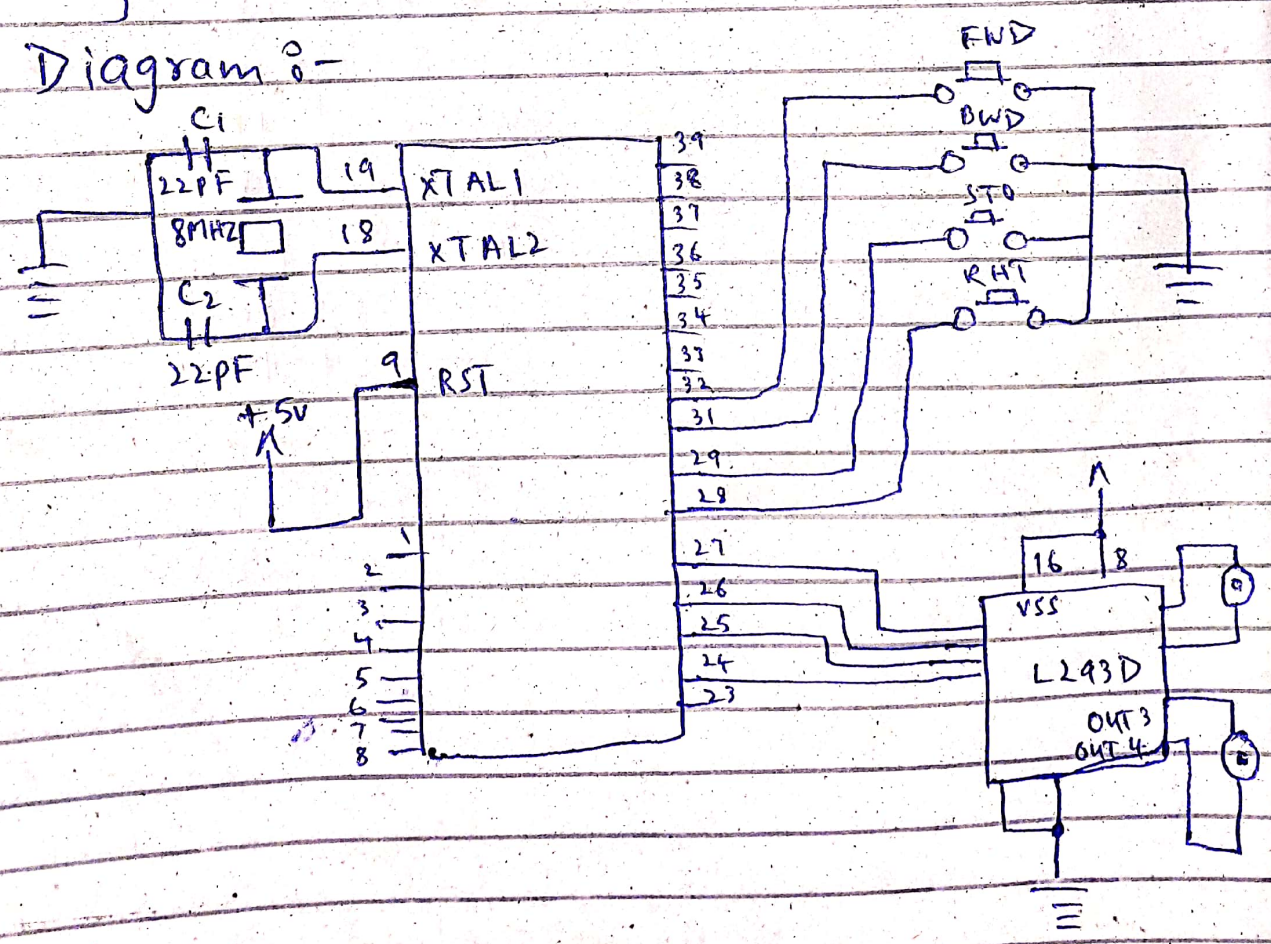 Diagram :-
C1
22PF
8MHZ
C2
22PF
19
18
XTAL1
XTAL2
9
RST
+5V
1
2
3
4
5
6
7
8
39
38
37
36
35
34
33
32
31
29
28
27
26
25
24
23
FWD
BWD
STO
RHT
16
8
VSS
L293D
OUT 3
OUT 4